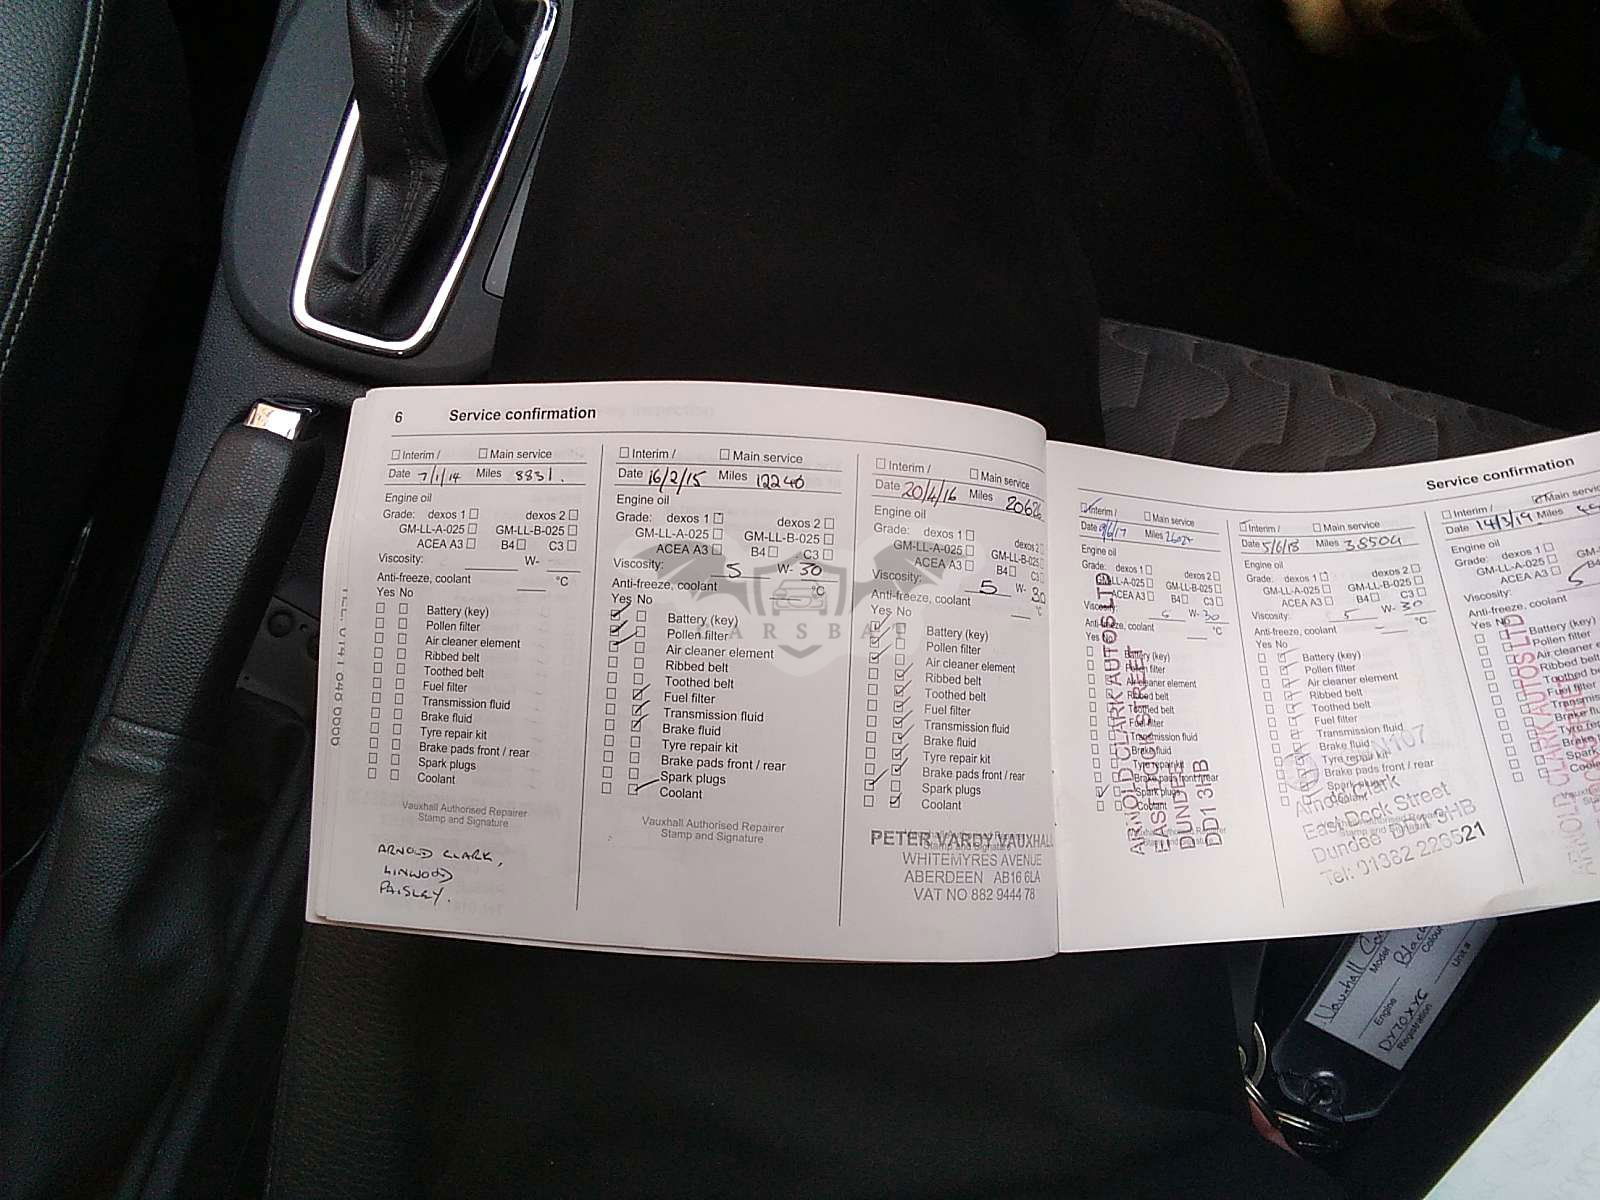 6 Service confirmation
Interim / Main service
Date 7/1/14 Miles 8831.
Engine oil
Grade: dexos 1 dexos 2
GM-LL-A-025 GM-LL-B-025
ACEA A3 B4 C3
Viscosity: W-
Anti-freeze, coolant °C
Yes No
Battery (key)
Pollen filter
Air cleaner element
Ribbed belt
Toothed belt
Fuel filter
Transmission fluid
Brake fluid
Tyre repair kit
Brake pads front / rear
Spark plugs
Coolant
Vauxhall Authorised Repairer
Stamp and Signature
ARNOLD CLARK,
LINWOOD
PAISLEY.
Interim / Main service
Date 16/2/15 Miles 12240
Engine oil
Grade: dexos 1 dexos 2
GM-LL-A-025 GM-LL-B-025
ACEA A3 B4 C3
Viscosity: 5 W- 30
Anti-freeze, coolant °C
Yes No
Battery (key)
Pollen filter
Air cleaner element
Ribbed belt
Toothed belt
Fuel filter
Transmission fluid
Brake fluid
Tyre repair kit
Brake pads front / rear
Spark plugs
Coolant
Vauxhall Authorised Repairer
Stamp and Signature
Interim / Main service
Date 20/4/16 Miles
Engine oil
Grade: dexos 1 dexos 2
GM-LL-A-025 GM-LL-B-025
ACEA A3 B4 C3
Viscosity: 5 W- 30
Anti-freeze, coolant °C
Yes No
Battery (key)
Pollen filter
Air cleaner element
Ribbed belt
Toothed belt
Fuel filter
Transmission fluid
Brake fluid
Tyre repair kit
Brake pads front / rear
Spark plugs
Coolant
PETER VARDY VAUXHALL
WHITEMYRES AVENUE
ABERDEEN AB16 6LA
VAT NO 882 9444 78
Service confirmation
Interim / Main service
Date Miles
Engine oil
Grade: dexos 1 dexos 2
GM-LL-B-025
ACEA A3 B4 C3
W- 30
°C
Battery (key)
Pollen filter
Air cleaner element
Ribbed belt
Toothed belt
Fuel filter
Transmission fluid
Brake fluid
Tyre repair kit
Brake pads front / rear
Spark plugs
Coolant
ARNOLD CLARK AUTOS LTD
DUNDEE
DD1 3HB
Interim / Main service
Date 5/6/18 Miles 38504
Engine oil
Grade: dexos 1 dexos 2
GM-LL-A-025 GM-LL-B-025
ACEA A3 B4 C3
Viscosity: 5 W- 30
Anti-freeze, coolant °C
Yes No
Battery (key)
Pollen filter
Air cleaner element
Ribbed belt
Toothed belt
Fuel filter
Transmission fluid
Brake fluid
Tyre repair kit
Brake pads front / rear
Spark plugs
Coolant
Arnold Clark
East Dock Street
Dundee
Tel: 01382 226521
Interim / Main
Date 14/3/19 Miles
Engine oil
Grade: dexos 1
GM-LL-A-025
ACEA A3
Viscosity: 5
Anti-freeze, coolant
Yes No
Battery (key)
Pollen filter
Air cleaner
Ribbed belt
Toothed
Fuel filter
ARNOLD CLARK AUTOS LTD
Vauxhall
Model
Engine
Colour
Registration
Unit #
ARSBAT